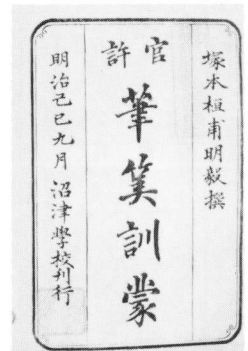 塚本桓甫明毅撰
官許
筆算訓蒙
明治己巳九月 沼津學校刊行